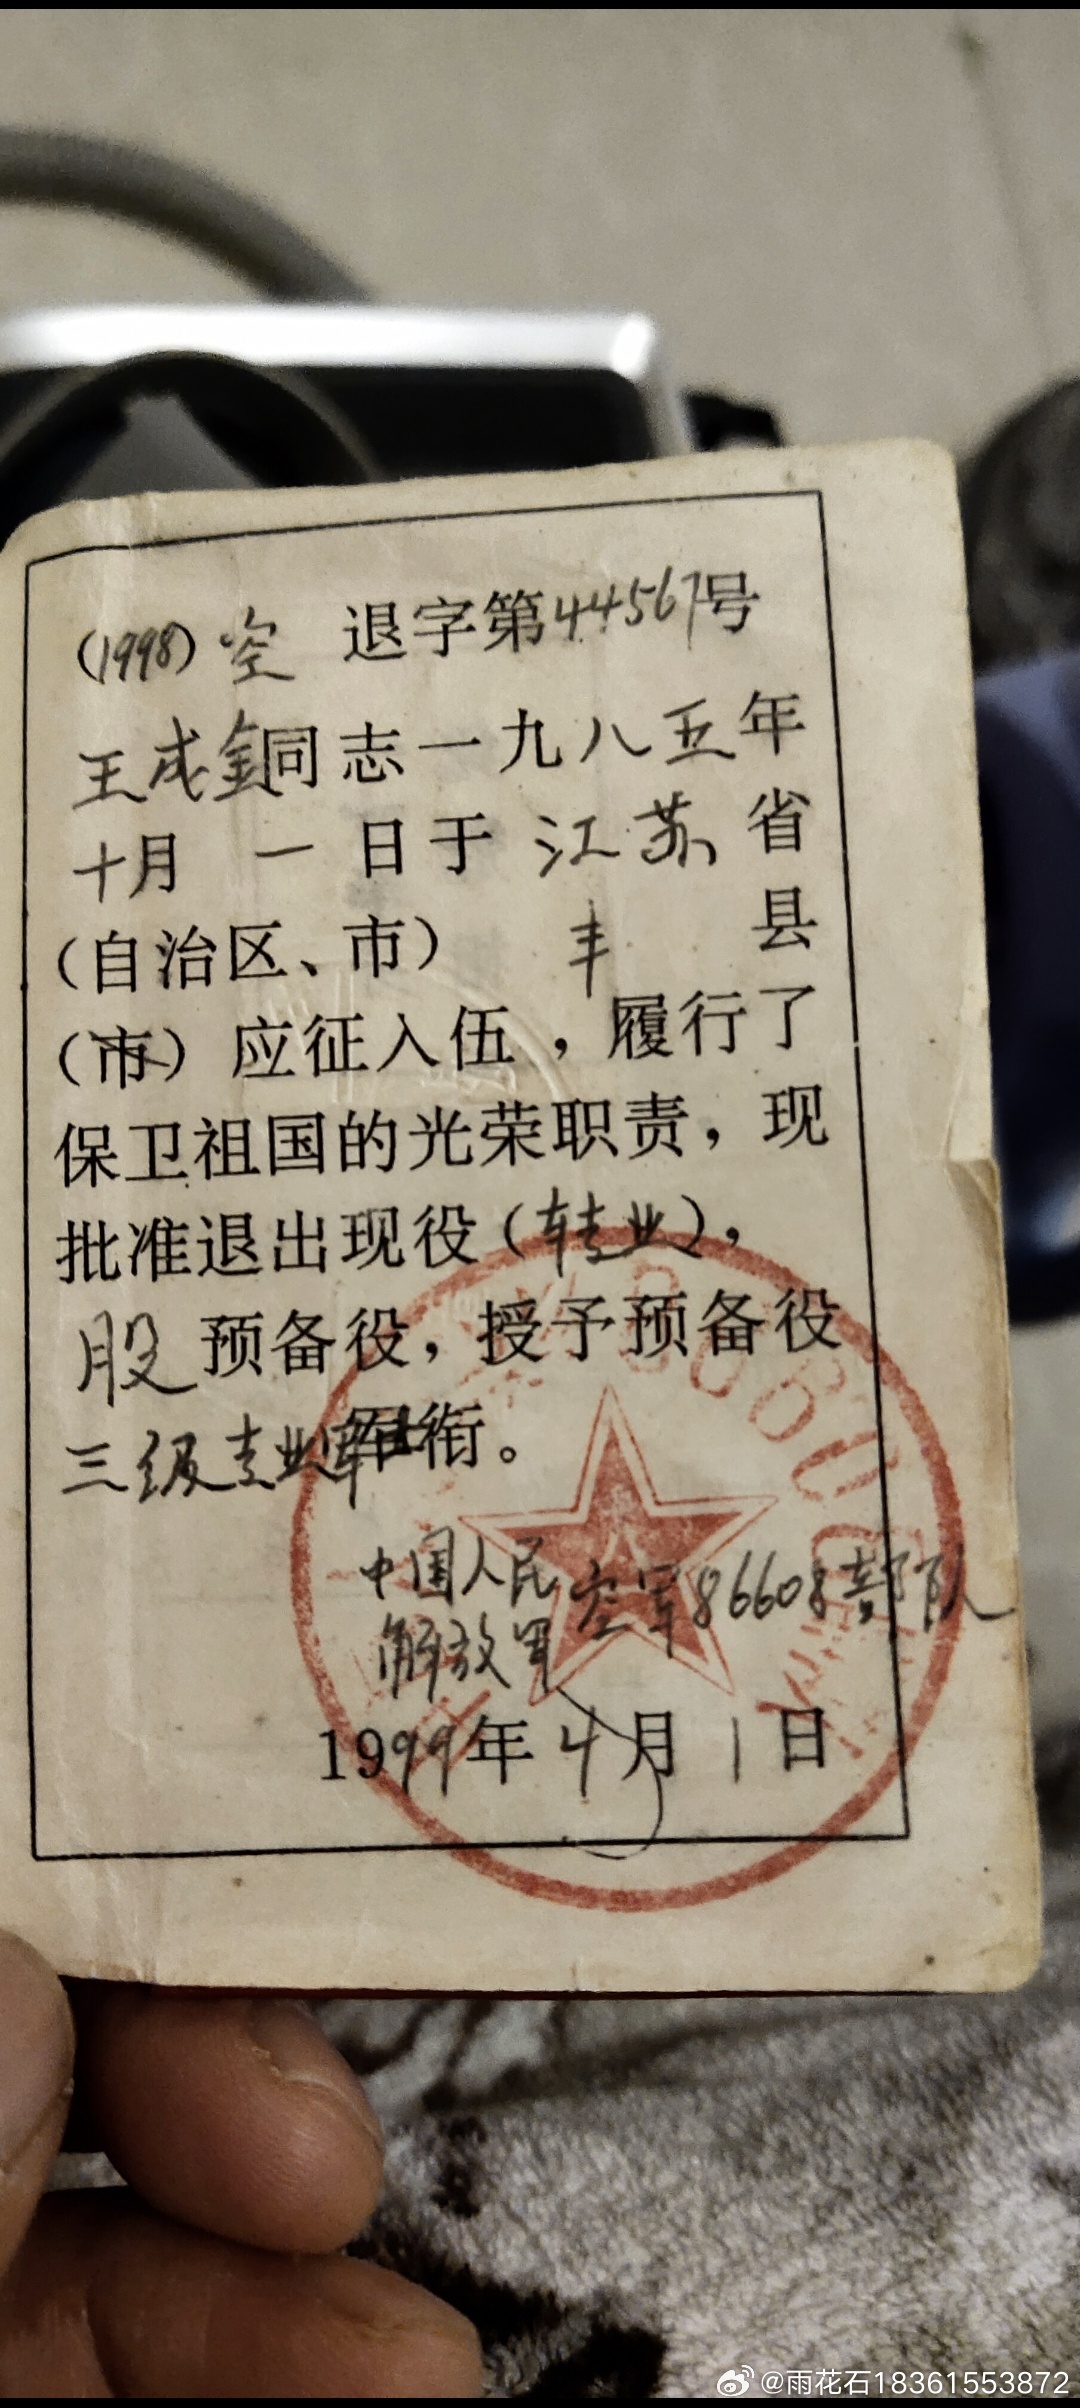 (1998)空 退字第44567号
王成金同志一九八五年
十月 一 日于 江苏 省
(自治区、市) 丰 县
(市) 应征入伍，履行了
保卫祖国的光荣职责，现
批准退出现役(转业)，
服预备役，授予预备役
三级专业军士军衔。
中国人民
解放军空军86608部队
1999年4月1日
@雨花石18361553872